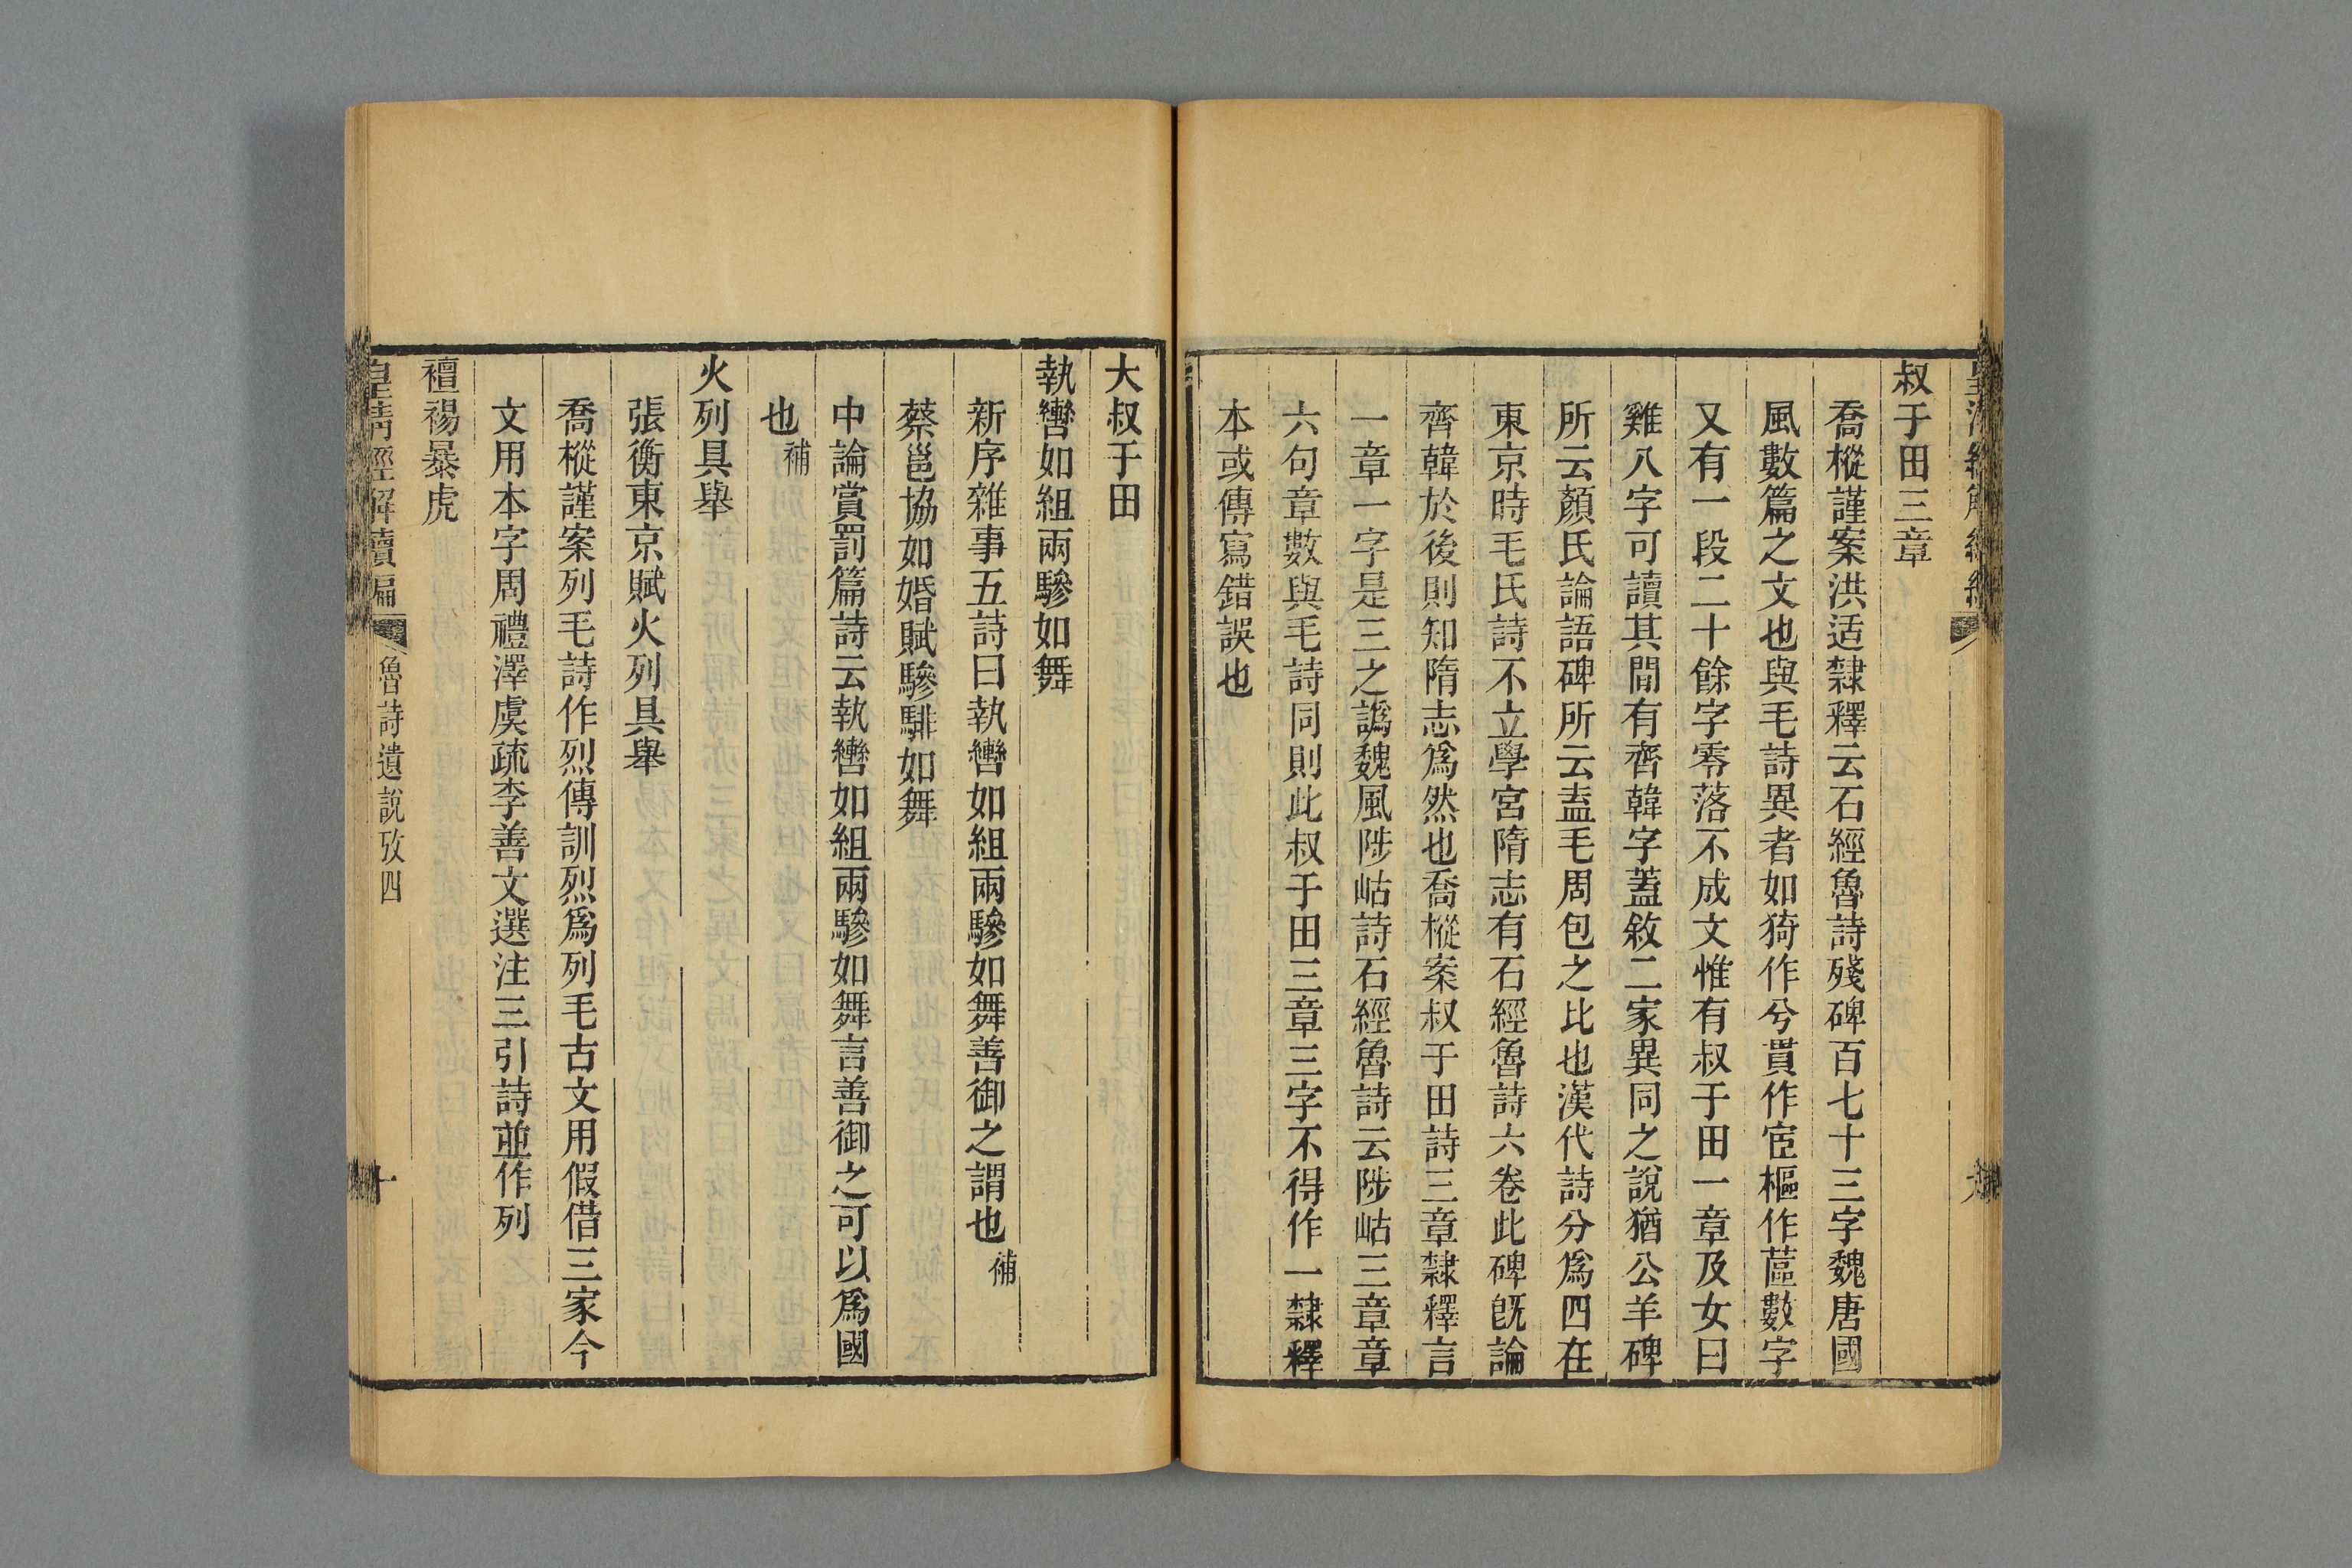 叔于田三章
喬樅謹案洪适隸釋云石經魯詩殘碑百七十三字魏唐國
風數篇之文也與毛詩異者如猗作兮貫作宦樞作蓲數字
又有一段二十餘字零落不成文惟有叔于田一章及女曰
雞八字可讀其閒有齊韓字蓋敘二家異同之說猶公羊碑
所云顏氏論語碑所云盍毛周包之比也漢代詩分爲四在
東京時毛氏詩不立學宮隋志有石經魯詩六卷此碑旣論
齊韓於後則知隋志爲然也喬樅案叔于田詩三章隸釋言
一章一字是三之譌魏風陟岵詩石經魯詩云陟岵三章章
六句章數與毛詩同則此叔于田三章三字不得作一隸釋
本或傳寫錯誤也
大叔于田
執轡如組兩驂如舞
新序雜事五詩曰執轡如組兩驂如舞善御之謂也補
蔡邕協如婚賦驂騑如舞
中論賞罰篇詩云執轡如組兩驂如舞言善御之可以爲國
也補
火列具舉
張衡東京賦火列具舉
喬樅謹案列毛詩作烈傳訓烈爲列毛古文用假借三家今
文用本字周禮澤虞疏李善文選注三引詩並作列
襢裼暴虎
皇淸經解續編
魯詩遺說攷四
十